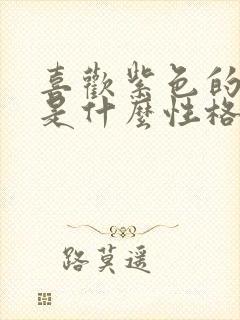 喜歡紫色的
是什麼性格
路莫遥